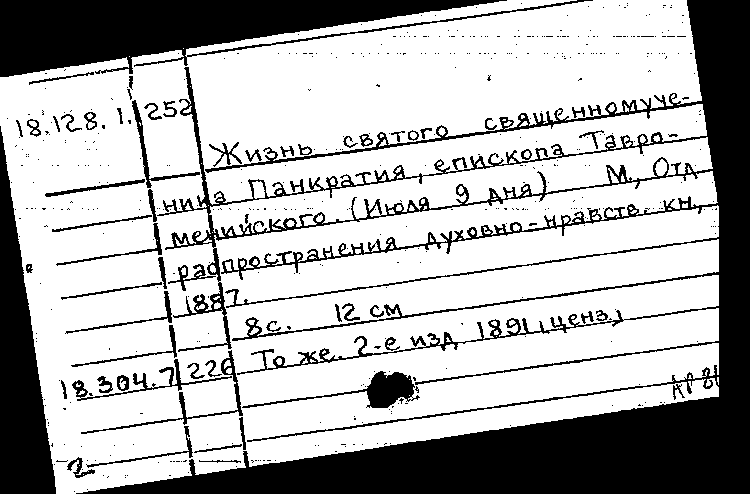 18.128.1. 252
Жизнь святого священномуче-
ника Панкратия, епископа Тавро-
менийского. (Июля 9 дня) М., Отд
распространения духовно-нравств. кн.,
1887.
8 с. 12 см
18.304.7 226 То же. 2-е изд 1891, ценз.,
АР 81
2